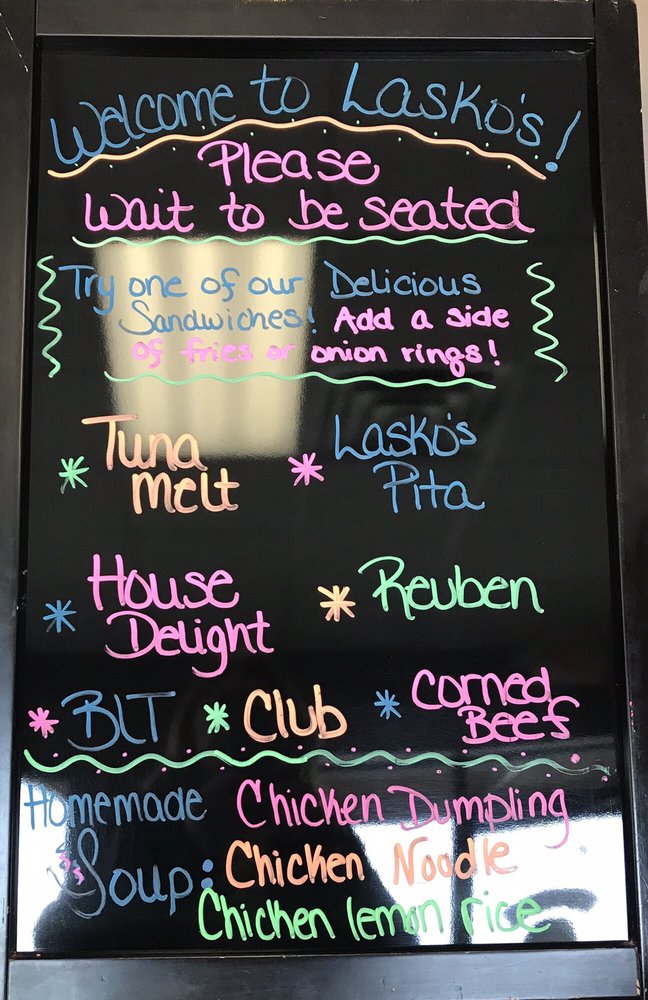 Welcome to Lasko's!
Please
Wait to be seated
Try one of our Delicious
Sandwiches! Add a side
of fries or onion rings!
* Tuna Melt
* Lasko's Pita
* House Delight
* Reuben
* BLT * Club * Corned Beef
Homemade Soup:
Chicken Dumpling
Chicken Noodle
Chicken lemon rice